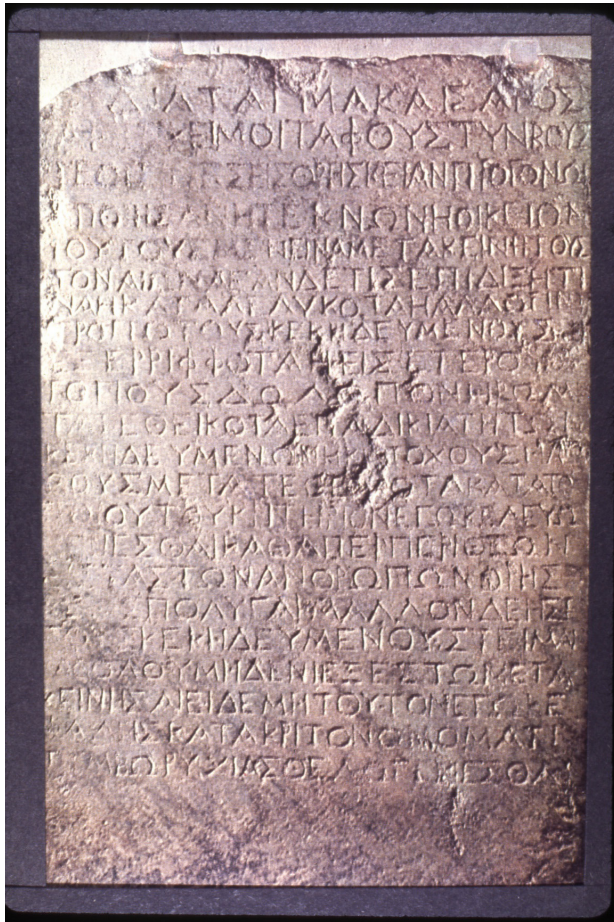 ΔΙΑΤΑΓΜΑ ΚΑΙΣΑΡΟΣ
ΑΡΕΣΚΕΙ ΜΟΙ ΤΑΦΟΥΣ ΤΥΝΒΟΥΣ
ΤΕ ΟΙΤΙΝΕΣ ΕΙΣ ΘΡΗΣΚΕΙΑΝ ΠΡΟΓΟΝΩΝ
ΕΠΟΙΗΣΑΝ Η ΤΕΚΝΩΝ Η ΟΙΚΕΙΩΝ
ΤΟΥΤΟΥΣ ΜΕΝΕΙΝ ΑΜΕΤΑΚΕΙΝΗΤΟΥΣ
ΤΟΝ ΑΙΩΝΑ ΕΑΝ ΔΕ ΤΙΣ ΕΠΙΔΕΙΞΗ ΤΙ
ΝΑ Η ΚΑΤΑΛΕΛΥΚΟΤΑ Η ΑΛΛΩ ΤΙΝΙ
ΤΡΟΠΩ ΤΟΥΣ ΚΕΚΗΔΕΥΜΕΝΟΥΣ
ΕΞΕΡΡΙΦΦΟΤΑ Η ΕΙΣ ΕΤΕΡΟΥΣ
ΤΟΠΟΥΣ ΔΩΛΩ ΠΟΝΗΡΩ ΜΕ
ΤΑΤΕΘΕΙΚΟΤΑ ΕΠ ΑΔΙΚΙΑ ΤΗ ΤΩΝ
ΚΕΚΗΔΕΥΜΕΝΩΝ Η ΚΑΤΟΧΟΥΣ Η ΛΙ
ΘΟΥΣ ΜΕΤΑΤΕΘΕΙΚΟΤΑ ΚΑΤΑ ΤΟΥ
ΤΟΙΟΥΤΟΥ ΚΡΙΤΗΡΙΟΝ ΕΓΩ ΚΕΛΕΥΩ
ΓΕΝΕΣΘΑΙ ΚΑΘΑΠΕΡ ΠΕΡΙ ΘΕΩΝ
ΤΑΣ ΤΩΝ ΑΝΘΡΩΠΩΝ ΘΡΗΣ
ΠΟΛΥ ΓΑΡ ΜΑΛΛΟΝ ΔΕΗΣΕΙ
ΤΟΥΣ ΚΕΚΗΔΕΥΜΕΝΟΥΣ ΤΕΙΜΑΝ
ΚΑΘΟΛΟΥ ΜΗΔΕΝΙ ΕΞΕΣΤΩ ΜΕΤΑ
ΚΕΙΝΗΣΑΙ ΕΙ ΔΕ ΜΗ ΤΟΥΤΟΝ ΕΓΩ ΚΕ
ΦΑΛΗΣ ΚΑΤΑΚΡΙΤΟΝ ΟΝΟΜΑΤΙ
ΤΥΜΒΩΡΥΧΙΑΣ ΘΕΛΩ ΓΕΝΕΣΘΑΙ